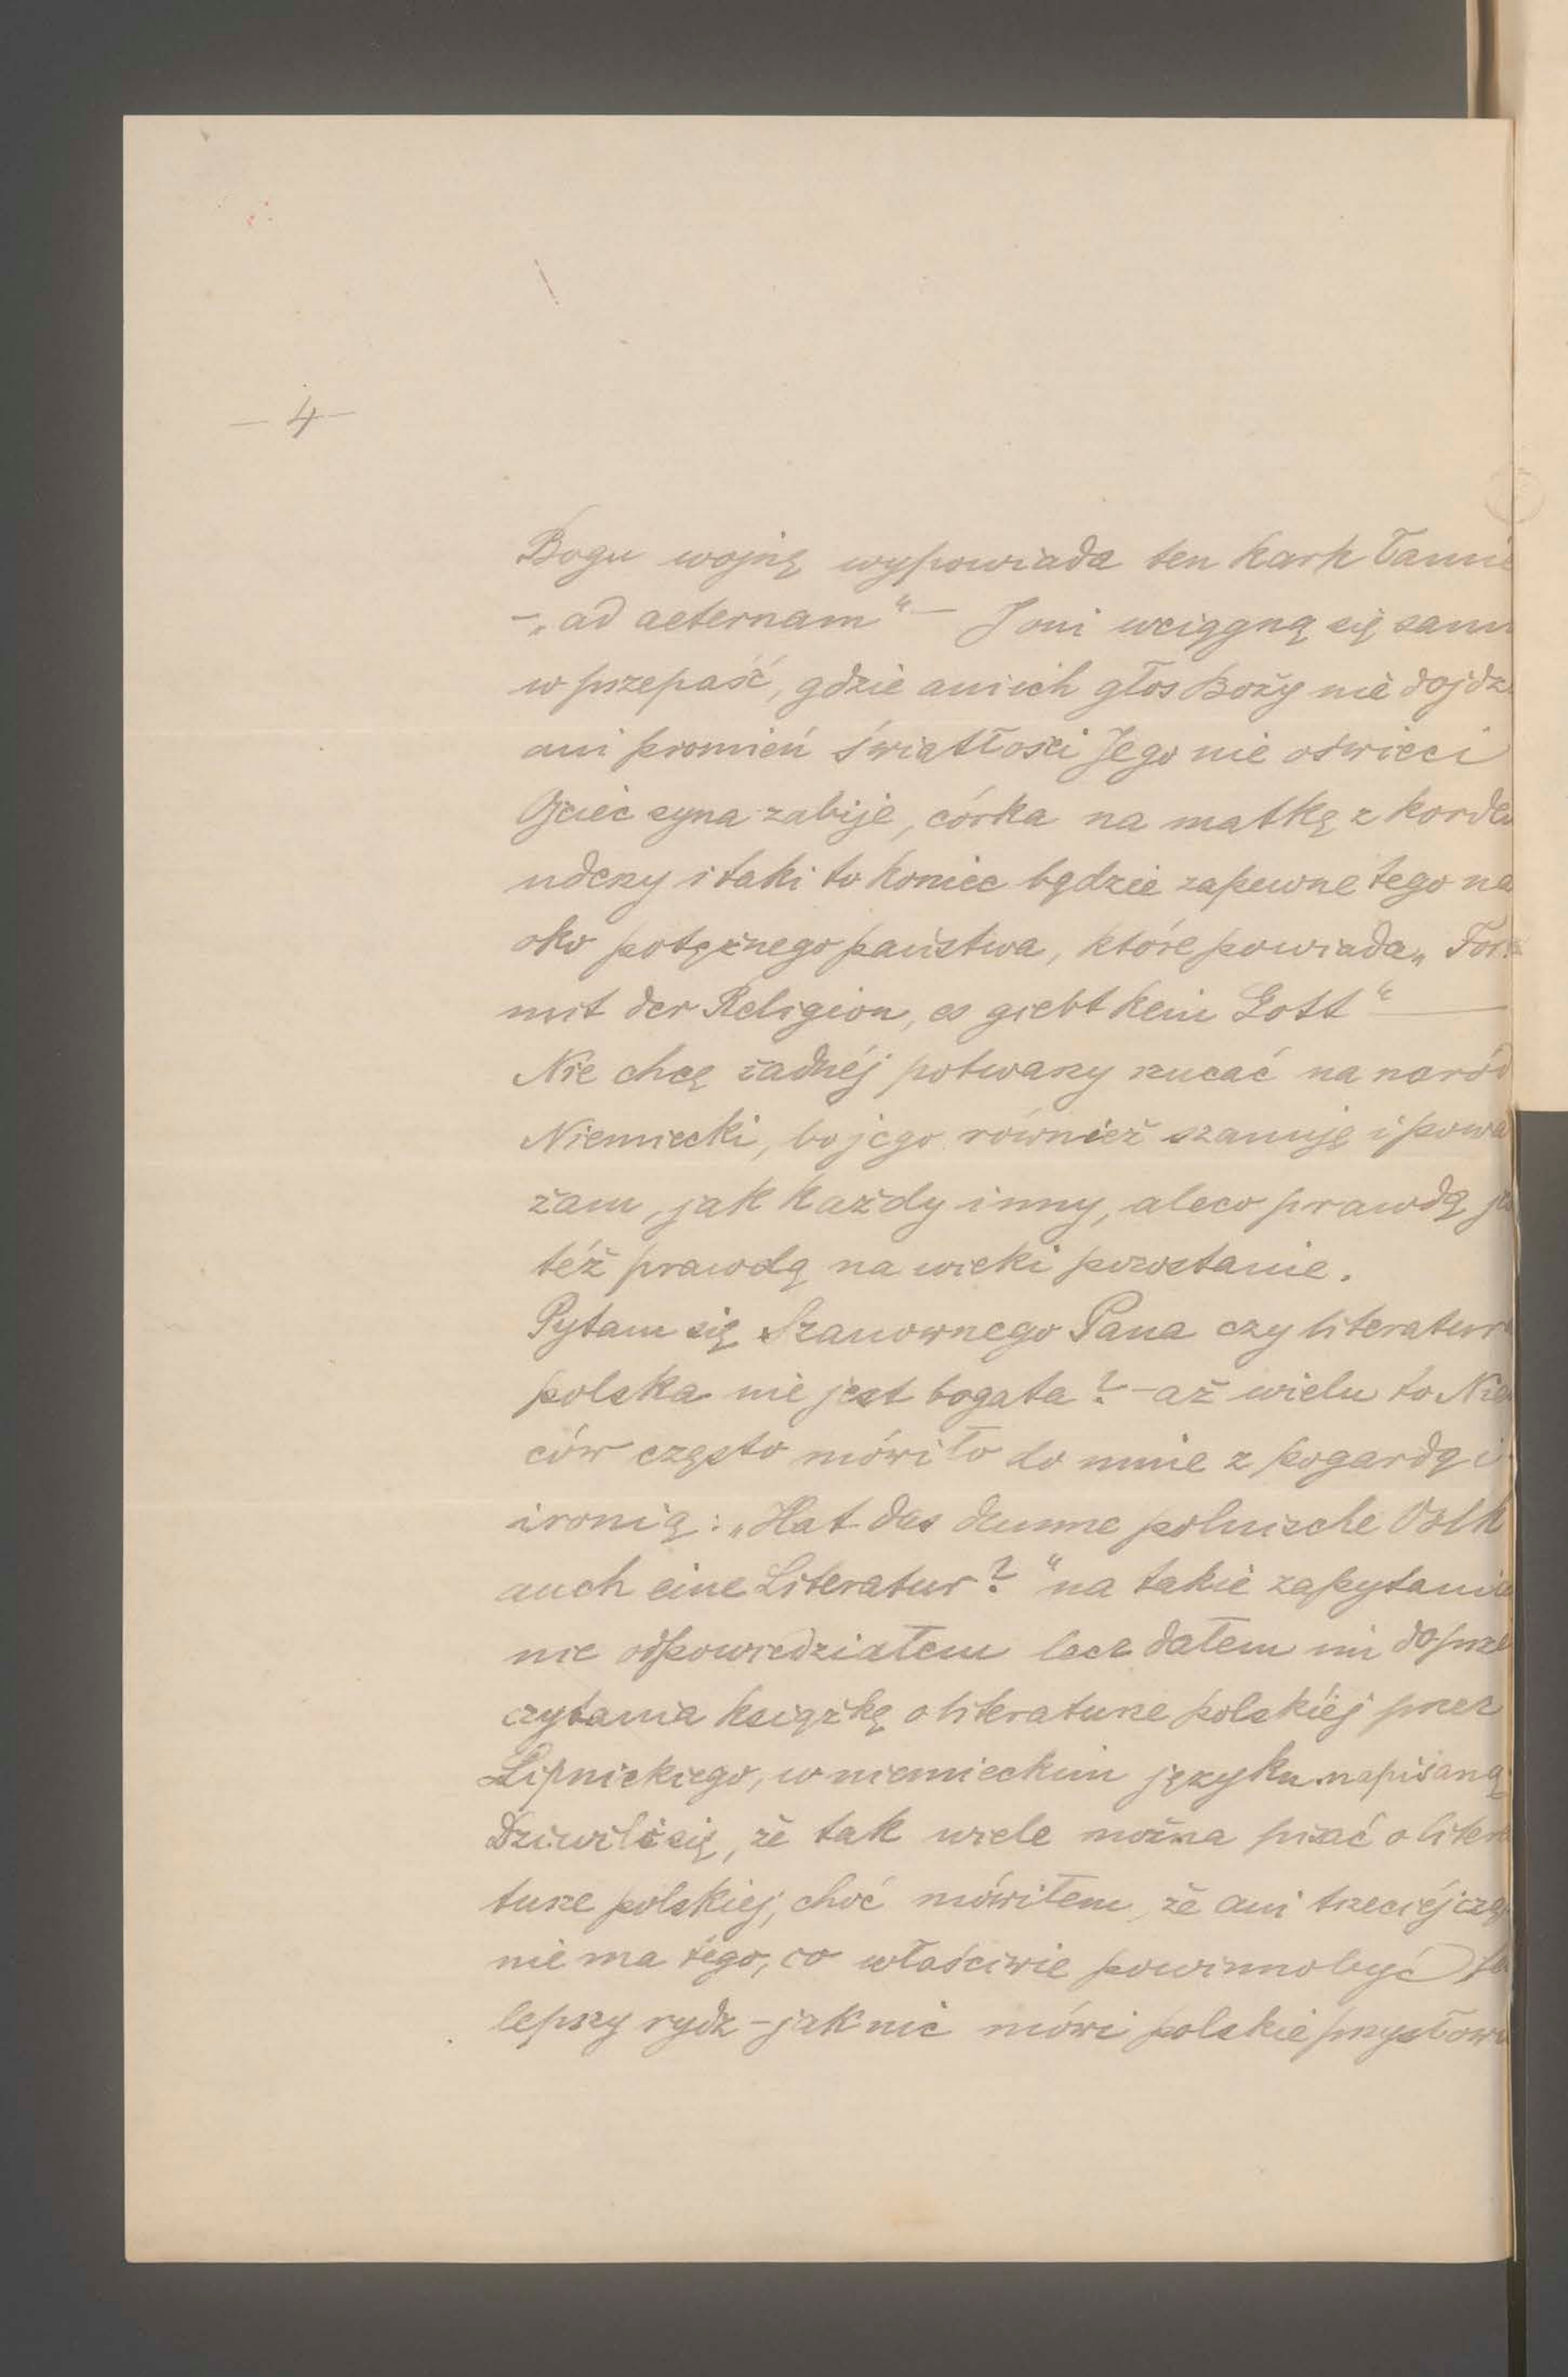 — 4 —
Bogu wojnę wypowiada ten kark łamie
—„ad aeternam“— I oni wciągną się sami
w przepaść, gdzie ani ich głos Boży nie dojdzi
ani promień światłości Jego nie oświeci
Ojciec syna zabije, córka na matkę z korde
uderzy i taki to koniec będzie zapewne tego na
oko potężnego państwa, które powiada „Fort
mit der Religion, es giebt kein Gott“ —
Nie chcę żadnéj potwarzy rzucać na naród
Niemiecki, bo jego również szanuję i powa
żam, jak każdy inny, ale co prawdą
téż prawdą na wieki pozostanie.
Pytam się Szanownego Pana czy literatura
polska nie jest bogata? — aż wielu to Niem
ców często mówiło do mnie z pogardą i
ironią: „Hat das dumme polnische Volk
auch eine Literatur?“ na takie zapytanie
nie odpowiedziałem lecz dałem im do prze
czytania książkę o literaturze polskiéj przez
Lipnickiego, w niemieckim języku napisaną
Dziwili się, że tak wiele można pisać o litera
turze polskiej, choć mówiłem, że ani trzeciéj czę
nie ma tego, co właściwie powinno być
lepszy rydz — jak nic mówi polskie przysłowi